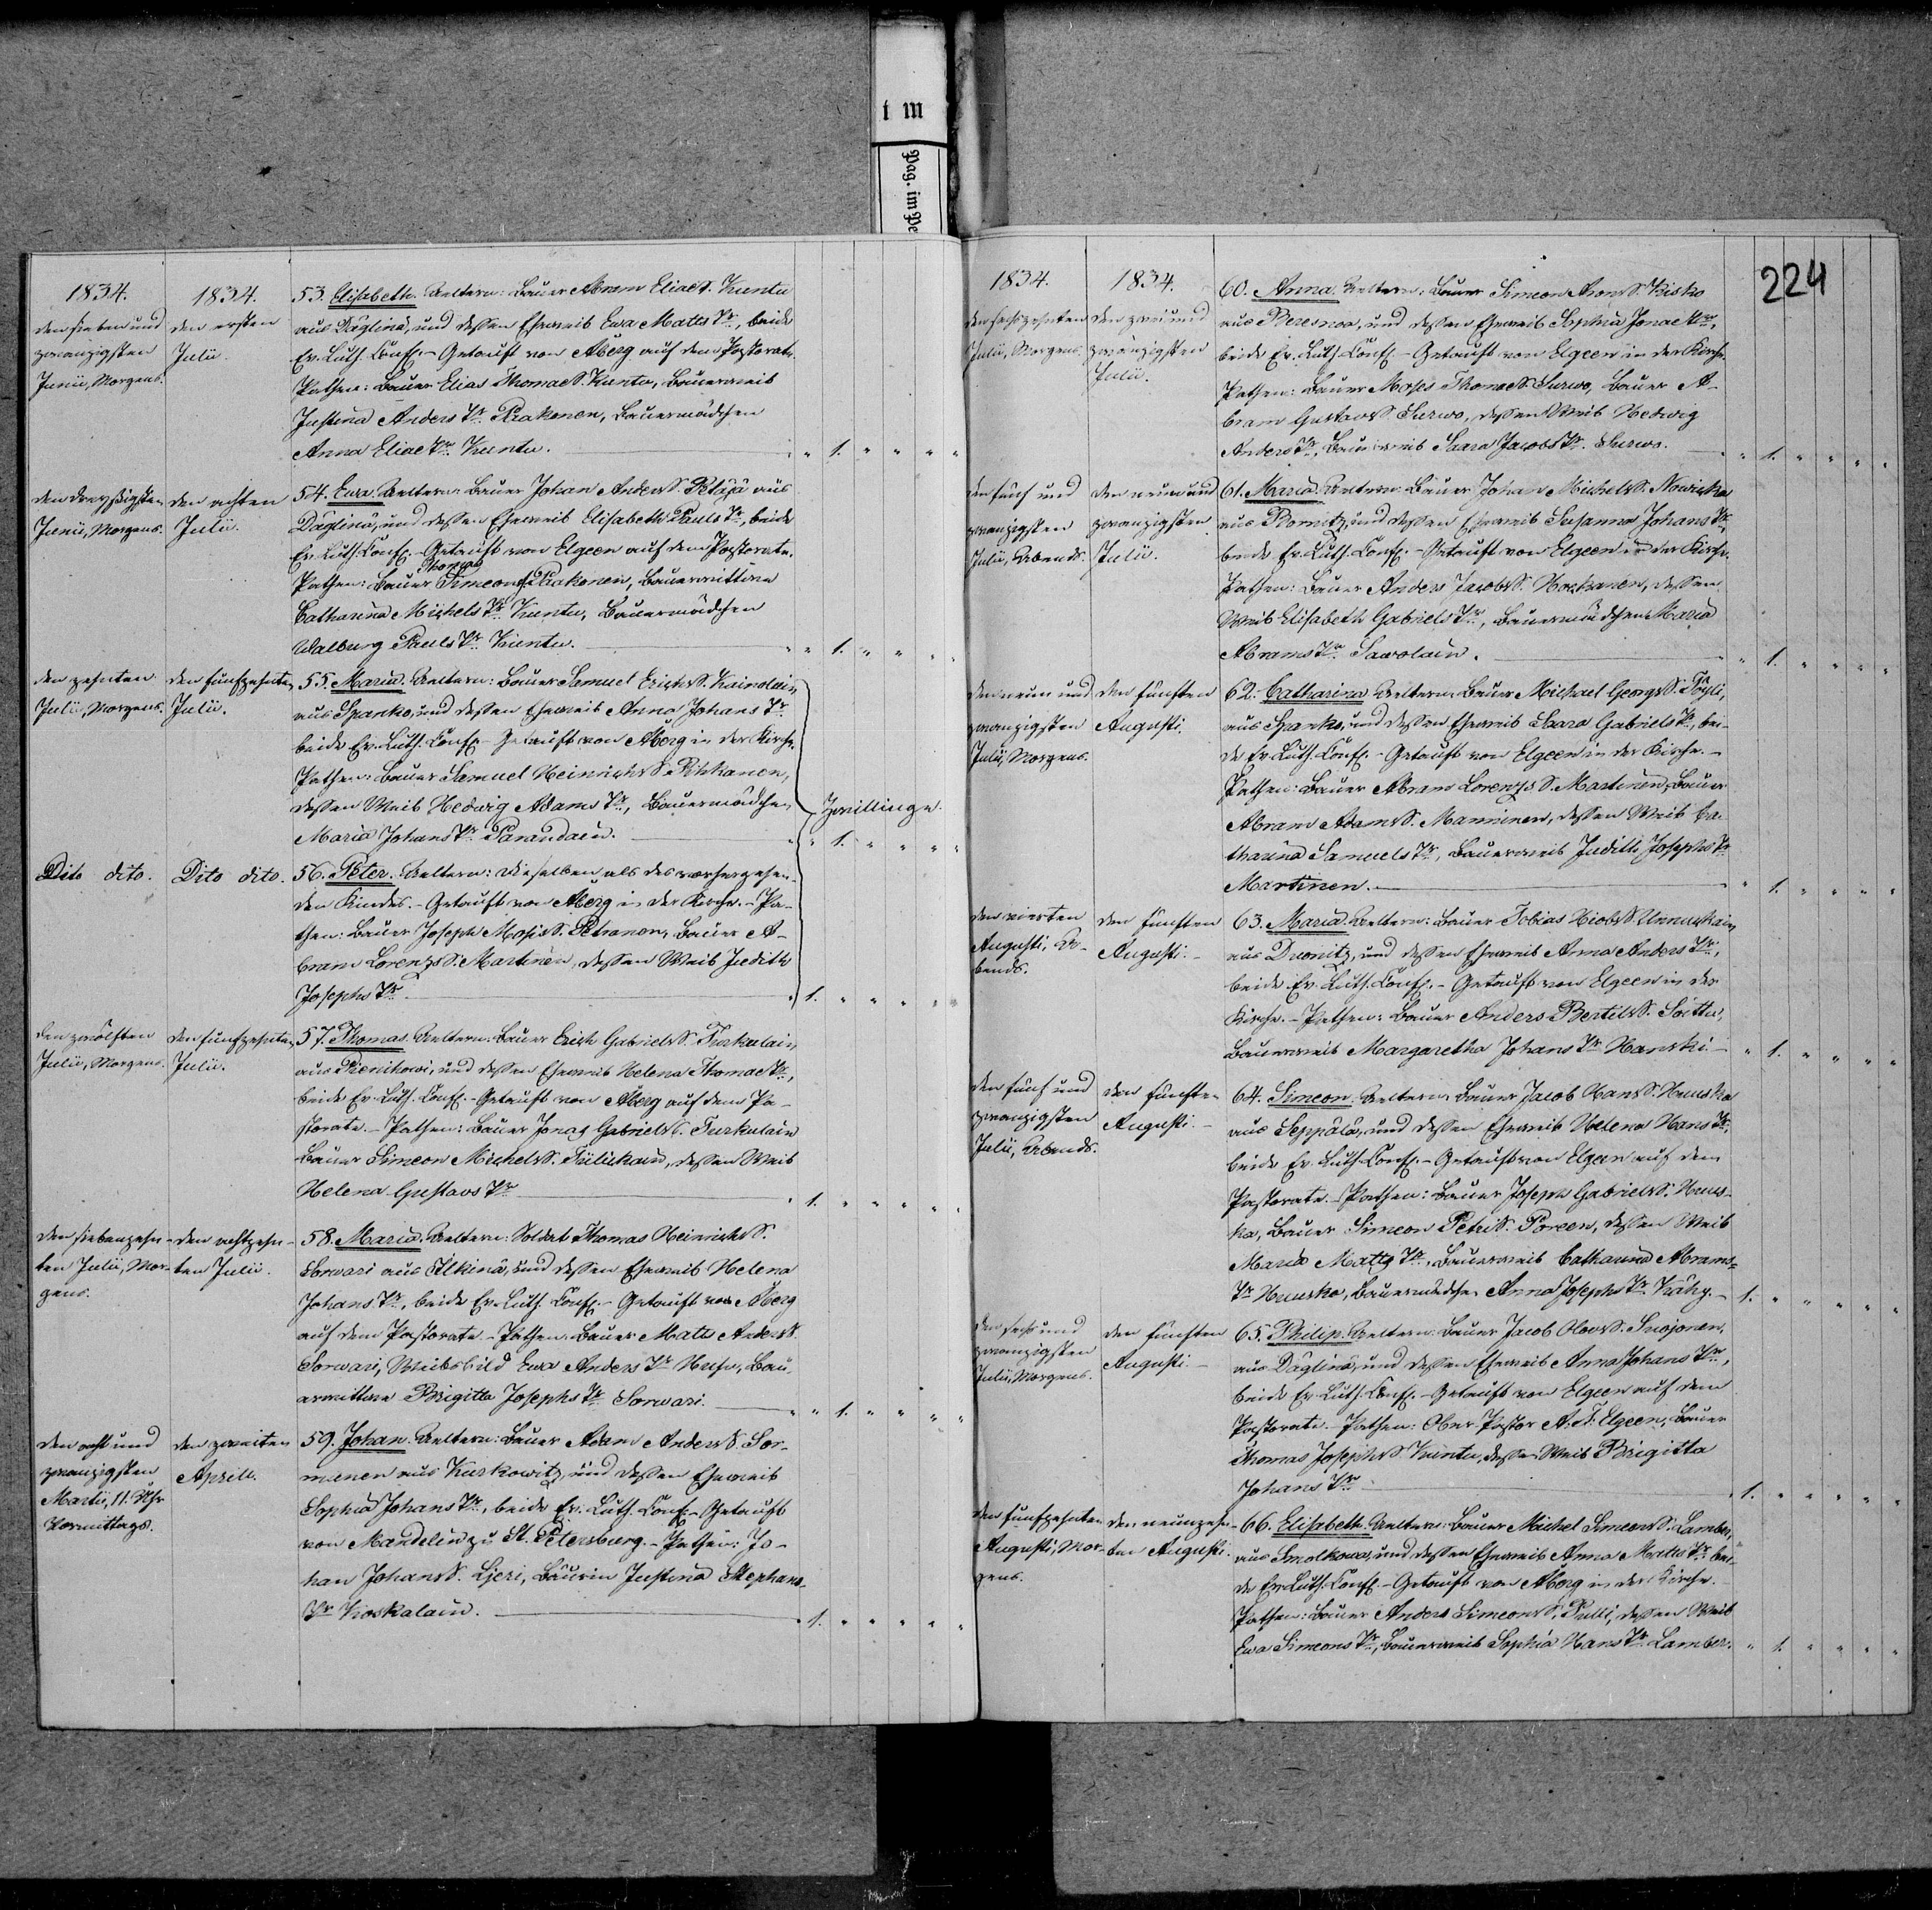 t m
Pag. im Pe
1834.
1834.
den sieben und
zwanzigsten
Junii, Morgens.
den ersten
Julii.
53. Elisabeth. Aeltern: Bauer Abram Eliae S. Kuntu
aus Däglina, und dessen Eheweib Ewa Matts Tr., beide
Ev. Luth. Conf. - Getauft von Åberg auf dem Pastorate.
Pathen: Bauer Elias Thomae S. Kuntu, Bauerweib
Justina Anders Tr. Prakonen, Bauermädchen
Anna Eliae Tr. Kuntu. " 1. " " " "
den dreyßigsten
Junii, Morgens.
den achten
Julii.
54. Ewa. Aeltern: Bauer Johan Anders S. Petäjä aus
Däglina, und dessen Eheweib Elisabeth Pauls Tr., beide
Ev. Luth. Conf. - Getauft von Elgeen auf dem Pastorate.
Thomas
Pathen: Bauer Simeons S. Prakonen, Bauerwittwe
Catharina Michels Tr. Kuntu, Bauermädchen
Walburg Pauls Tr. Kuntu. " 1. " " " "
den zehnten
Julii, Morgens.
den funfzehnten
Julii.
55. Maria. Aeltern: Bauer Samuel Erichs S. Kainolain
aus Spanko, und dessen Eheweib Anna Johans Tr.
beide Ev. Luth. Conf. - Getauft von Åberg in der Kirche.
Pathen: Bauer Samuel Heinrichs S. Pihkanen,
dessen Weib Hedwig Adams Tr., Bauermädchen
Maria Johans Tr. Parandain. " 1. " " " "
Zwillinge.
Dito dito.
Dito dito.
56. Peter. Aeltern: dieselben als des vorhergehen-
den Kindes. - Getauft von Åberg in der Kirche. - Pa-
then: Bauer Joseph Mosis S. Petranen, Bauer A-
bram Lorenzs S. Martinen, dessen Weib Judith
Josephs Tr. 1. " " " " "
den zwölften
Julii, Morgens.
den funfzehnten
Julii.
57. Thomas. Aeltern: Bauer Erich Gabriels S. Turkulain
aus Pienikowi, und dessen Eheweib Helena Thomae Tr.,
beide Ev. Luth. Conf. - Getauft von Åberg auf dem Pa-
storate. - Pathen: Bauer Jonas Gabriels S. Turkulain
Bauer Simeon Michels S. Tülükain, dessen Weib
Helena Gustavs Tr. 1. " " " " "
den siebenzehn-
ten Julii, Mor-
gens.
den achtzehn-
ten Julii.
58. Maria. Aeltern: Soldat Thomas Heinrichs S.
Sorwari aus Ilkina, und dessen Eheweib Helena
Johans Tr., beide Ev. Luth. Conf. - Getauft von Åberg
auf dem Pastorate. - Pathen: Bauer Matts Anders S.
Sorwari, Weibsbild Ewa Anders Tr. Hufw, Bau-
erwittwe Brigitta Josephs Tr. Sorwari. " 1. " " " "
den acht und
zwanzigsten
Martii, 11. Uhr
Vormittags.
den zweiten
Aprill.
59. Johan. Aeltern: Bauer Adam Anders S. Sor-
munen aus Kuskowitz, und dessen Eheweib
Sophia Johans Tr., beide Ev. Luth. Conf. - Getauft
von Mandelin zu St. Petersburg. - Pathen: Jo-
han Johans S. Ljeri, Bäurin Justina Stephans
Tr. Koskalain. 1. " " " " "
224
1834.
1834.
den sechszehnten
Julii, Morgens.
den zwei und
zwanzigsten
Julii.
60. Anna. Aeltern: Bauer Simeon Arons S. Kisko
aus Beresnoa, und dessen Eheweib Sophia Jonae Tr.,
beide Ev. Luth. Conf. - Getauft von Elgeen in der Kirche.
Pathen: Bauer Moses Thomae S. Surwo, Bauer A-
bram Gustavs S. Surwo, dessen Weib Hedwig
Anders Tr., Bauerweib Saara Jacobs Tr. Surwo. " 1. " " " "
den fünf und
zwanzigsten
Julii, Abends.
den neun und
zwanzigsten
Julii.
61. Maria. Aeltern: Bauer Johan Michels S. Nowiska
aus Bornitz, und dessen Eheweib Susanna Johans Tr.
beide Ev. Luth. Conf. - Getauft von Elgeen in der Kirche.
Pathen: Bauer Anders Jacobs S. Hockanen, dessen
Weib Elisabeth Gabriels Tr., Bauermädchen Maria
Abrams Tr. Sawolain. " 1. " " " "
den neun und
zwanzigsten
Julii, Morgens.
den fünften
Augusti.
62. Catharina. Aeltern: Bauer Michael Georgs S. Pöyli,
aus Spanko, und dessen Eheweib Saara Gabriels Tr., bei-
de Ev. Luth. Conf. - Getauft von Elgeen in der Kirche. -
Pathen: Bauer Abram Lorenzs S. Martinen, Bauer
Abram Adams S. Manninen, dessen Weib Ca-
tharina Samuels Tr., Bauerweib Judith Josephs Tr.
Martinen. " 1. " " " "
den vierten
Augusti, A-
bends.
den fünften
Augusti. -
63. Maria. Aeltern: Bauer Tobias Hiobs S. Unnuckain
aus Duonitz, und dessen Eheweib Anna Anders Tr.,
beide Ev. Luth. Conf. - Getauft von Elgeen in der
Kirche. - Pathen: Bauer Anders Bertils S. Soittu,
Bauerweib Margaretha Johans Tr. Hanski. - " 1. " " " "
den fünf und
zwanzigsten
Julii, Abends.
den fünften
Augusti. -
64. Simeon. Aeltern: Bauer Jacob Hans S. Huuska
aus Seppälä, und dessen Eheweib Helena Hans Tr.,
beide Ev. Luth. Conf. - Getauft von Elgeen auf dem
Pastorate. - Pathen: Bauer Joseph Gabriels S. Huus-
ka, Bauer Simeon Petri S. Poreen, dessen Weib
Maria Matts Tr., Bauerweib Catharina Abrams-
Tr. Huuska, Bauermädchen Anna Josephs Tr. Kähy. - 1. " " " " "
den sechs und
zwanzigsten
Julii, Morgens.
den fünften
Augusti. -
65. Philip. Aeltern: Bauer Jacob Olovs S. Suojonen,
aus Däglina, und dessen Eheweib Anna Johans Tr.,
beide Ev. Luth. Conf. - Getauft von Elgeen auf dem
Pastorate. - Pathen: Ober-Pastor A. F. Elgeen, Bauer
Thomas Josephs S. Kuntu, dessen Weib Brigitta
Johans Tr. 1. " " " " "
den funfzehnten
Augusti, Mor-
gens.
den neunzehn-
ten Augusti.
66. Elisabeth. Aeltern: Bauer Michel Simeons S. Lamber,
aus Smolkowa, und dessen Eheweib Anna Matts Tr. bei-
de Ev. Luth. Conf. - Getauft von Åberg in der Kirche.
Pathen: Bauer Anders Simeons S. Pulli, dessen Weib
Ewa Simeons Tr., Bauerweib Sophia Hans Tr. Lamber. " 1. " " " "